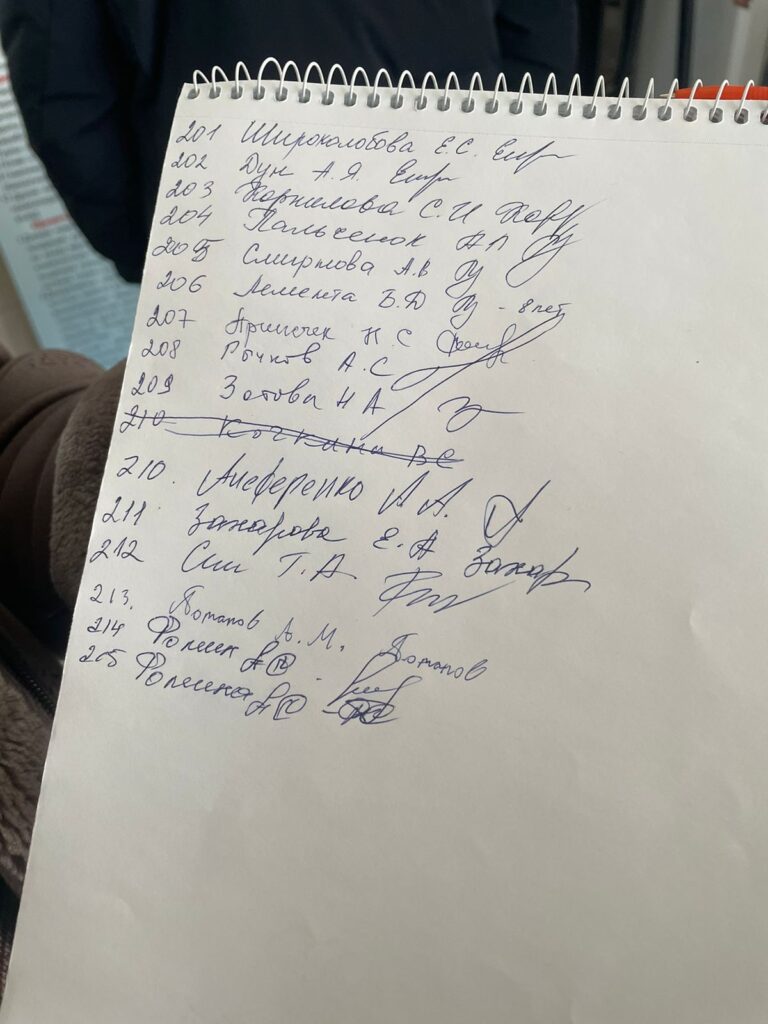 201 Широколобова Е.С.
202 Дун А.Я.
203 Корнилова С.И Кор
204 Пальченок А П
205 Смирнова А.В
206 Лемента Б.Д - 8 лет
207 Н С
208 Рычков А.С
209 Зотова Н А
210 Кочкина В С
210. Анеференко А А.
211. Захарова Е.А Захар
212 Сим Т.А
213. Потапов А.М. Потапов
214 Фомин
215 Фомина